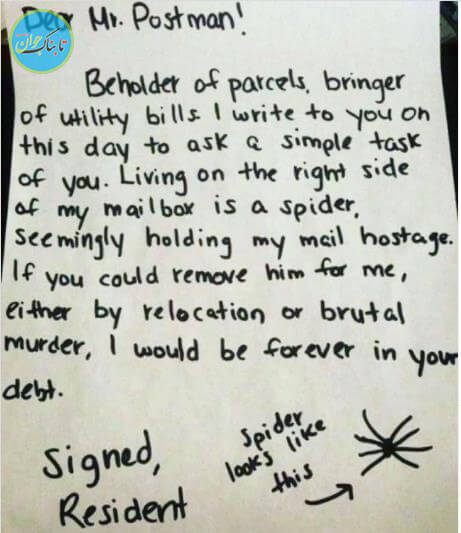 Dear Mr. Postman!
تابناک جوان
Beholder of parcels, bringer
of utility bills I write to you on
this day to ask a simple task
of you. Living on the right side
of my mailbox is a spider,
seemingly holding my mail hostage.
If you could remove him for me,
either by relocation or brutal
murder, I would be forever in your
debt.
Signed,
Resident
Spider
looks like
this